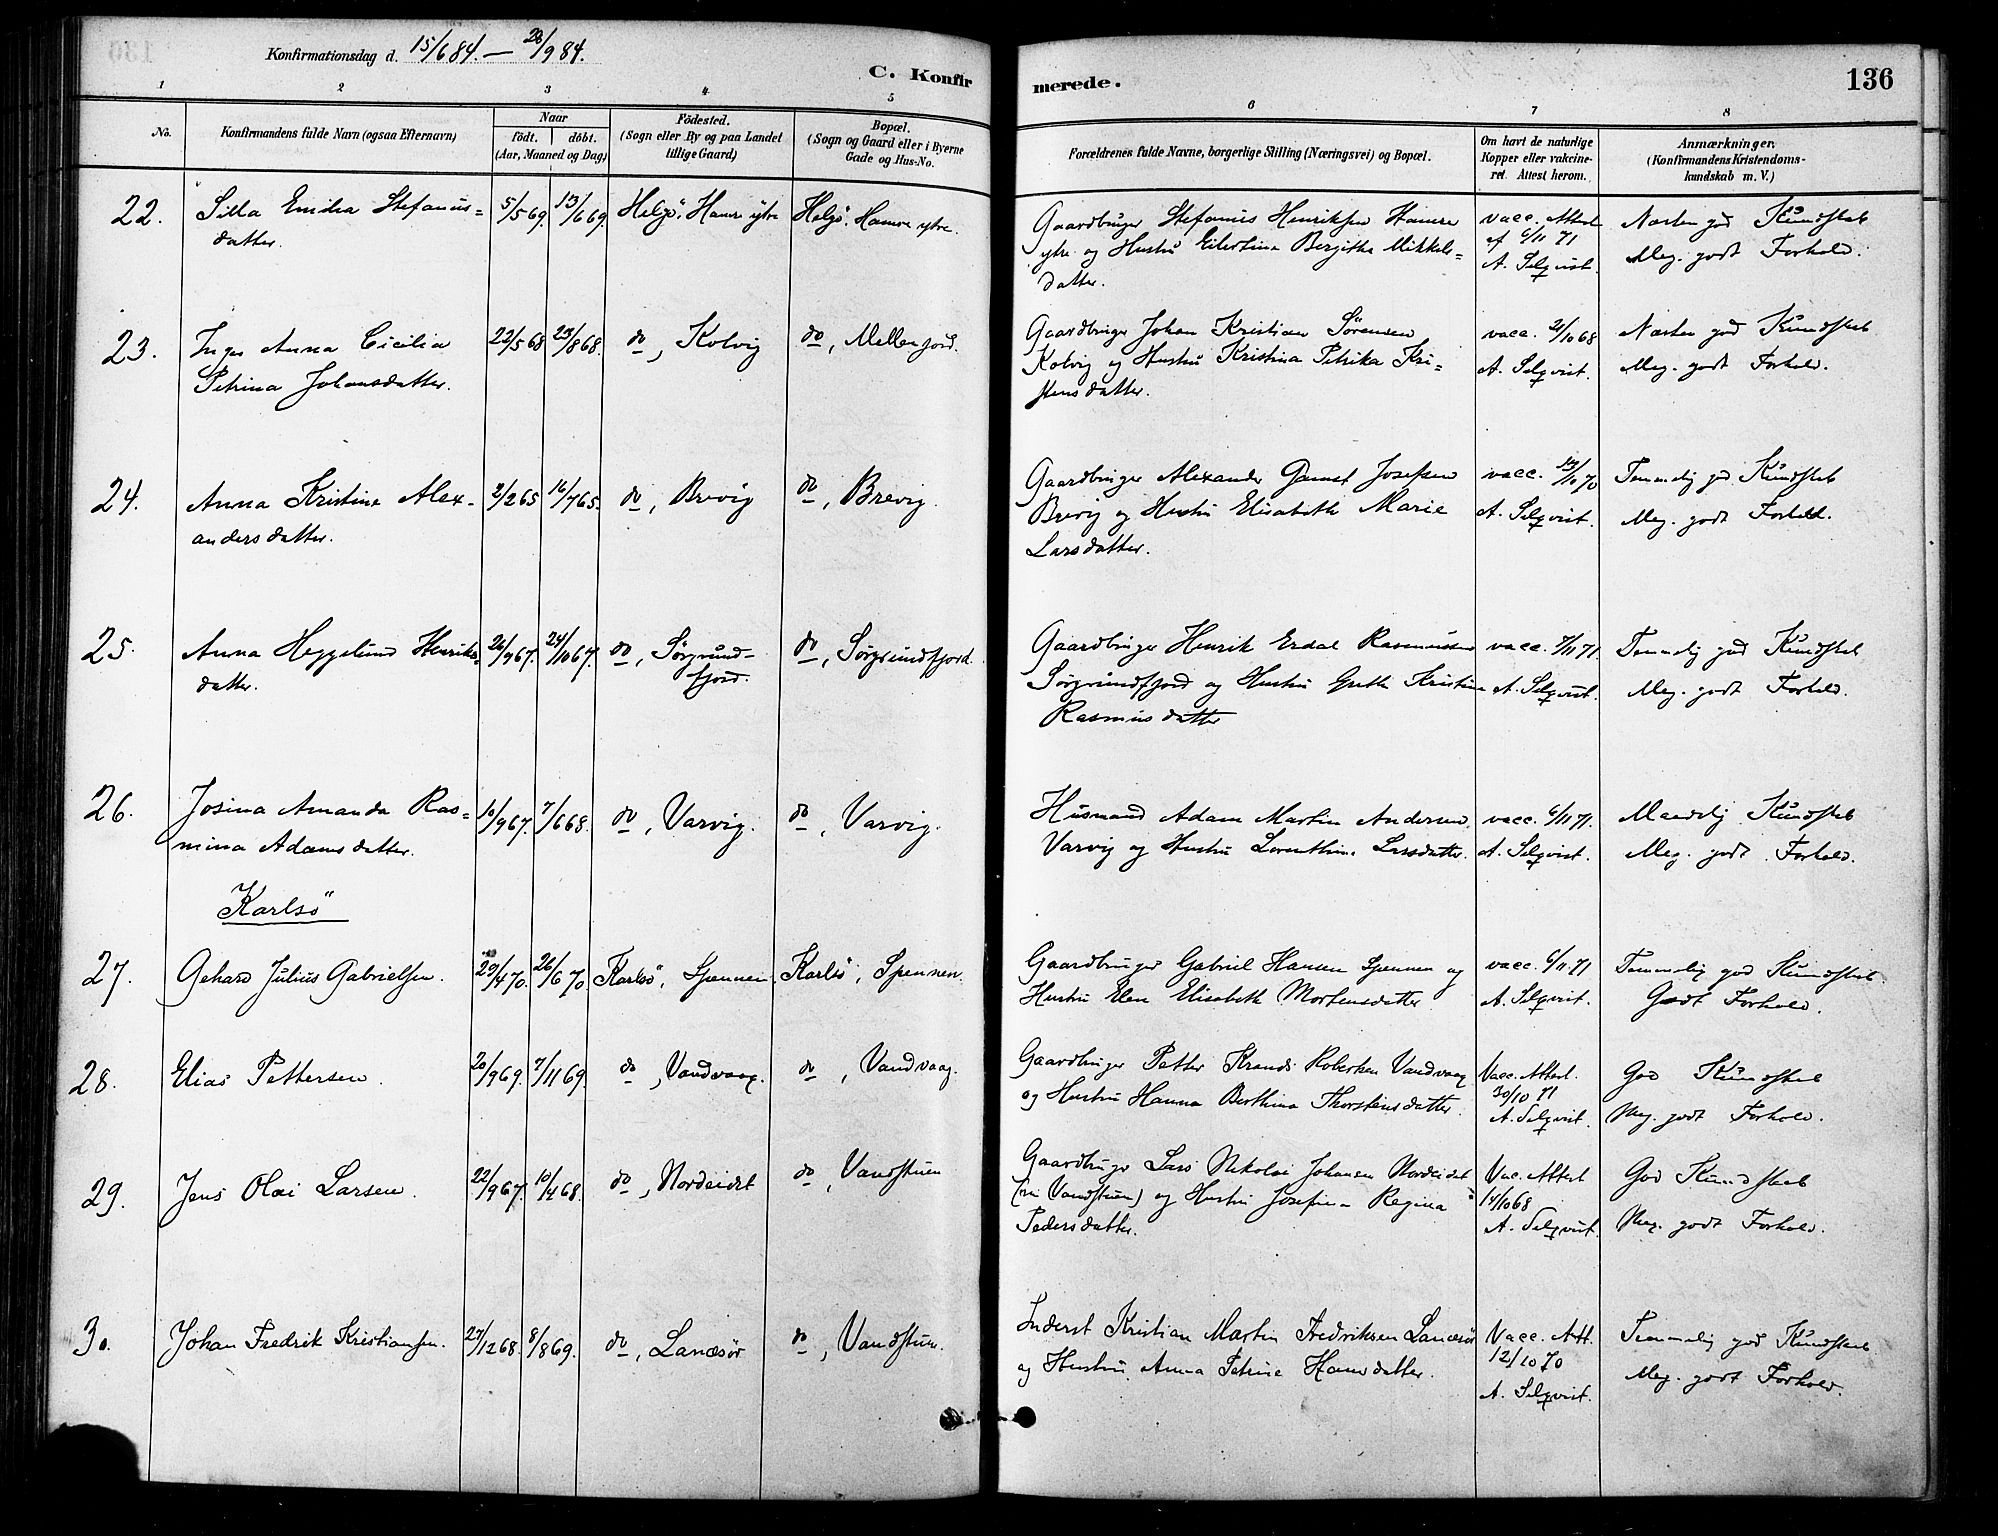 Konfirmationsdag d. 15/6 84. — 28/9 84.
C. Konfirmerede.
136
1 2 3 4 5 6 7 8
No.
Konfirmandens fulde Navn (ogsaa Efternavn)
Naar
födt. döbt.
(Aar, Maaned og Dag)
Födested.
(Sogn eller By og paa Landet
tillige Gaard)
Bopæl.
(Sogn og Gaard eller i Byerne
Gade og Hus-No.
Forældrenes fulde Navne, borgerlige Stilling (Næringsvei) og Bopæl.
Om havt de naturlige
Kopper eller vakcine-
ret. Attest herom.
Anmærkninger.
(Konfirmandens Kristendoms-
kundskab m. V.)
22. Silla Emilia Stefanus= 5/5 69. 13/6 69. Helgö, Hamre ytre Helgö, Hamre ytre.
datter.
Gaardbruger Stefanus Henriksen Hamre
ytre og Hustru Eilertina Bergitha Mikkels=
datter.
vacc. Attest
af 6/11 71
A. Selqvist.
Næsten god Kundskab
Meg. godt Forhold.
23. Inger Anna Cicilia 22/5 68 23/8 68. do, Kolvig do, Mellenfjord.
Petrina Johansdatter.
Gaardbruger Johan Kristian Sörensen
Kolvig og Hustru Kristina Petrika Kri=
stensdatter.
vacc. 21/10 68
A. Selqvist.
Næsten god Kundskab
Meg. godt Forhold.
24. Anna Kristine Alex- 2/2 65 16/7 65. do, Brevig do, Brevig.
andersdatter.
Gaardbruger Alexander Josefsen
Brevig og Hustru Elisabeth Marie
Larsdatter.
vacc. 70
A. Selqvist.
Temmelig god Kundskab
Meg. godt Forhold.
25. Anna Heggelund Henriks- 26/9 67. 24/10 67. do, Sørgrund- do, Sørgrundfjord
datter. fjord.
Gaardbruger Henrik Erdal Rasmussen
Sørgrundfjord og Hustru Greth Kristine
Rasmusdatter
vacc. 7/11 71.
A. Selqvist.
Temmelig god Kundskab
Meg. godt Forhold.
26. Josina Amanda Ras= 10/9 67. 7/6 68. do, Varvig. do, Varvig.
mina Adamsdatter.
Husmand Adam Martin Andersen
Varvig og Hustru Lorenthine Larsdatter.
vacc. 6/11 71.
A. Selqvist.
Maadelig Kundskab
Meg. godt Forhold.
Karlsö
27. Gehard Julius Gabrielsen. 29/4 70. 26/6 70 Karlsö, Spennen. Karlsö, Spennen.
Gaardbruger Gabriel Hansen Spennen og
Hustru Elen Elisabeth Mortensdatter
vacc. 6/11 71
A. Selqvist.
Temmelig god Kundskab.
Godt Forhold.
28. Elias Pettersen. 20/9 69. 7/11 69. do, Vandvaag. do, Vandvaag.
Gaardbruger Petter Robertsen Vandvaag
og Hustru Hanna Berthina Thorstensdatter.
Vacc. Attest.
30/10 71
A. Selqvist.
God Kundskab
Meg. godt Forhold.
29. Jens Olai Larsen. 22/9 67. 10/4 68. do, Nordeidet do, Vandstuen
Gaardbruger Lars Nikolai Johansen Nordeidet
(nu Vandstuen) og Hustru Josefine Regina
Pedersdatter.
Vac. Attest
14/10 68
A. Selqvist.
God Kundskab
Meg. godt Forhold.
30. Johan Fredrik Kristiansen. 27/12 68. 8/8 69. do, Lanesör do, Vandstuen.
Inderst Kristian Martin Fredriksen Lanesör
og Hustru Anna Petrine Hansdatter.
Vacc. Att.
12/10 70
A. Selqvist.
Temmelig god Kundskab.
Meg. godt Forhold.